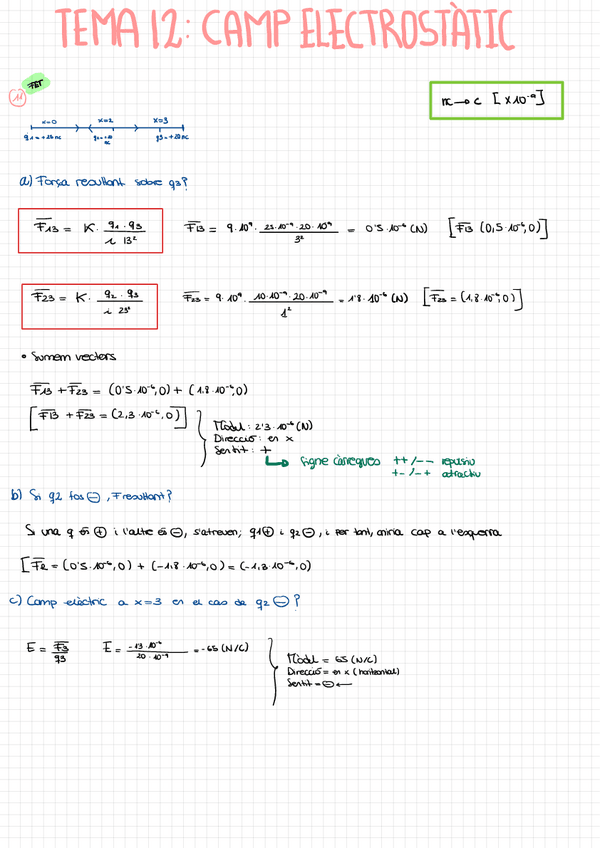 TEMA 12: CAMP ELECTROSTÀTIC
FET
11
nc → c [x10⁻⁹]
x=0 x=2 x=3
q3=+20nc
a) Força resultant sobre q3?
F13 = K · q1 · q3 / r 13² F13 = 9·10⁹ · 25·10⁻⁹ · 20·10⁻⁹ / 3² = 0'5·10⁻⁶ (N) [F13 (0,5·10⁻⁶, 0)]
F23 = K · q2 · q3 / r 23² F23 = 9·10⁹ · 10·10⁻⁹ · 20·10⁻⁹ / 1² = 1'8·10⁻⁶ (N) [F23 = (1,8·10⁻⁶, 0)]
• Sumem vectors
F13 + F23 = (0'5·10⁻⁶, 0) + (1.8·10⁻⁶, 0)
[F13 + F23 = (2,3·10⁻⁶, 0)]
Mòdul: 2'3·10⁻⁶ (N)
Direcció: en x
Sentit: +
Signe càrregues ++/-- repulsiu
+-/-+ atractiu
b) Si q2 fos ⊖, F resultant?
Si una q és ⊕ i l'altre és ⊖, s'atreuen; q1⊕ i q2⊖, i per tant, aniria cap a l'esquerra
[FR = (0'5·10⁻⁶, 0) + (-1,8·10⁻⁶, 0) = (-1,3·10⁻⁶, 0)
c) Camp elèctric a x=3 en el cas de q2 ⊖?
E = F3 / q3 E = -1'3·10⁻⁶ / 20·10⁻⁹ = -65 (N/C)
Mòdul = 65 (N/C)
Direcció = en x (horitzontal)
Sentit = ⊖ ←